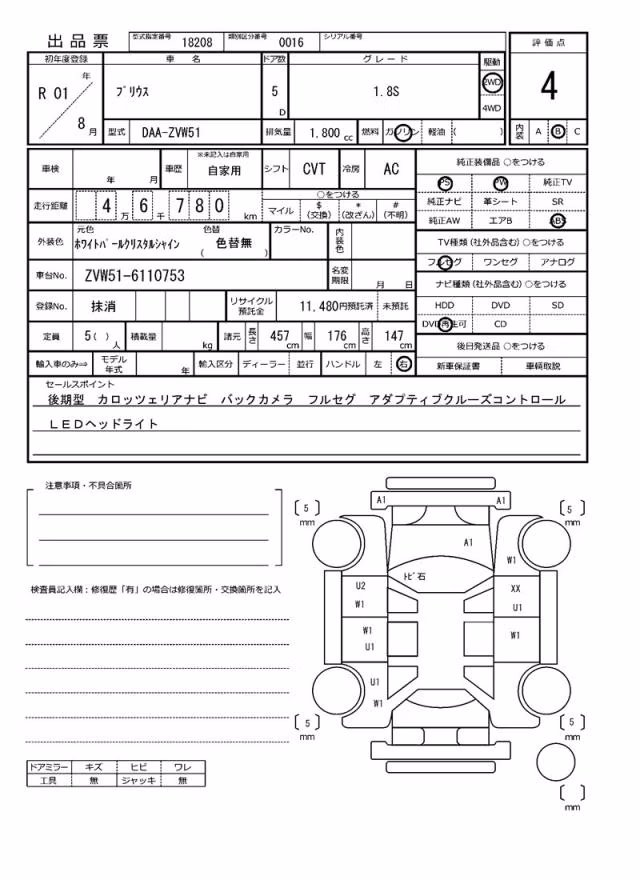 出品票 型式指定番号 18208 類別区分番号 0016 シリアル番号
初年度登録 車名 ドア数 グレード 駆動 評価点
R 01 年 8 月 プリウス 5 D 1.8S 2WD 4WD 4
型式 DAA-ZVW51 排気量 1.800 cc 燃料 ガソリン 軽油 ( ) 内装 A B C
車検 年 月 車歴 ※未記入は自家用 自家用 シフト CVT 冷房 AC
走行距離 4 6 7 8 0 万 千 km ○をつける マイル $ (交換) * (改ざん) # (不明)
外装色 元色 ホワイトパールクリスタルシャイン 色替 ( 色替無 ) カラーNo. 内装色
車台No. ZVW51-6110753 名変期限 月 日
登録No. 抹消 リサイクル預託金 11,480円預託済 未預託
定員 5( ) 人 積載量 kg 諸元 長さ 457 cm 幅 176 cm 高さ 147 cm
輸入車のみ⇒ モデル年式 年 輸入区分 ディーラー 並行 ハンドル 左 右
純正装備品 ○をつける
PS PW 純正TV
純正ナビ 革シート SR
純正AW エアB ABS
TV種類(社外品含む) ○をつける
フルセグ ワンセグ アナログ
ナビ種類(社外品含む) ○をつける
HDD DVD SD
DVD再生可 CD
後日発送品 ○をつける
新車保証書 車輌取説
セールスポイント
後期型 カロッツェリアナビ バックカメラ フルセグ アダプティブクルーズコントロール
LEDヘッドライト
注意事項・不具合箇所
検査員記入欄:修復歴「有」の場合は修復箇所・交換箇所を記入
ドアミラー キズ ヒビ ワレ
工具 無 ジャッキ 無
A1 A1
5 mm 5 mm
A1
W1
トビ石
U2 XX
W1 U1
W1 W1
U1
U1
W1
5 mm 5 mm
mm